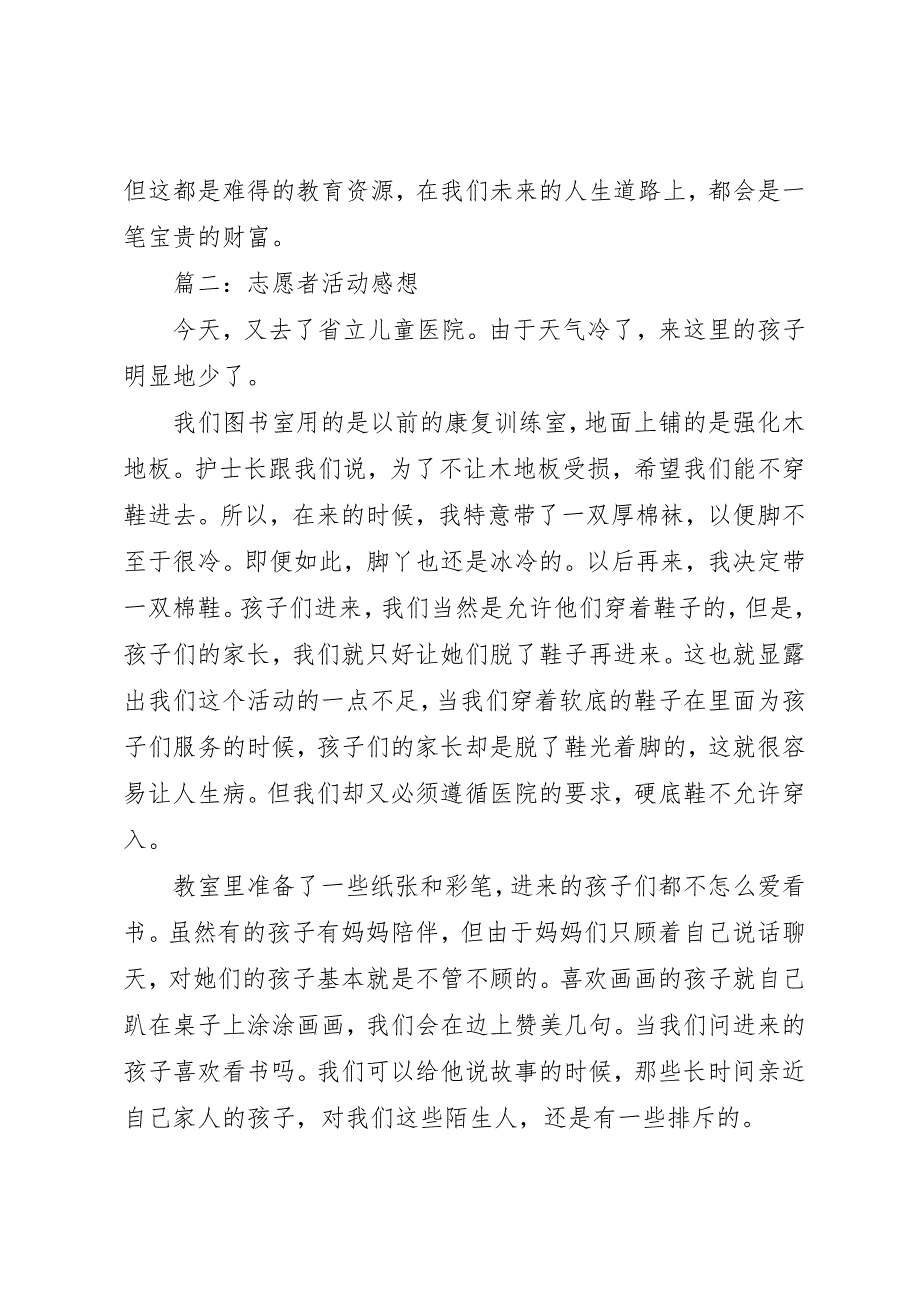 但这都是难得的教育资源，在我们未来的人生道路上，都会是一
笔宝贵的财富。
篇二：志愿者活动感想
今天，又去了省立儿童医院。由于天气冷了，来这里的孩子
明显地少了。
我们图书室用的是以前的康复训练室，地面上铺的是强化木
地板。护士长跟我们说，为了不让木地板受损，希望我们能不穿
鞋进去。所以，在来的时候，我特意带了一双厚棉袜，以便脚不
至于很冷。即便如此，脚丫也还是冰冷的。以后再来，我决定带
一双棉鞋。孩子们进来，我们当然是允许他们穿着鞋子的，但是，
孩子们的家长，我们就只好让她们脱了鞋子再进来。这也就显露
出我们这个活动的一点不足，当我们穿着软底的鞋子在里面为孩
子们服务的时候，孩子们的家长却是脱了鞋光着脚的，这就很容
易让人生病。但我们却又必须遵循医院的要求，硬底鞋不允许穿
入。
教室里准备了一些纸张和彩笔，进来的孩子们都不怎么爱看
书。虽然有的孩子有妈妈陪伴，但由于妈妈们只顾着自己说话聊
天，对她们的孩子基本就是不管不顾的。喜欢画画的孩子就自己
趴在桌子上涂涂画画，我们会在边上赞美几句。当我们问进来的
孩子喜欢看书吗。我们可以给他说故事的时候，那些长时间亲近
自己家人的孩子，对我们这些陌生人，还是有一些排斥的。